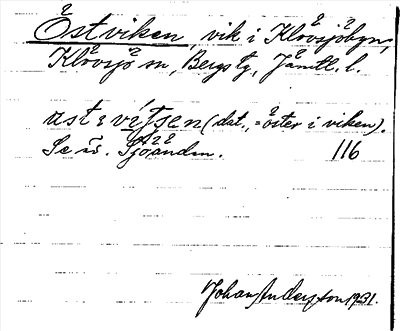 Östviken, vik i Klövsjöbyn,
Klövsjö sn, Bergs tg, Jämtl. l.
(dat., = öster i viken).
Se äv. Sjöändan. 116
Johan Andersson 1931.